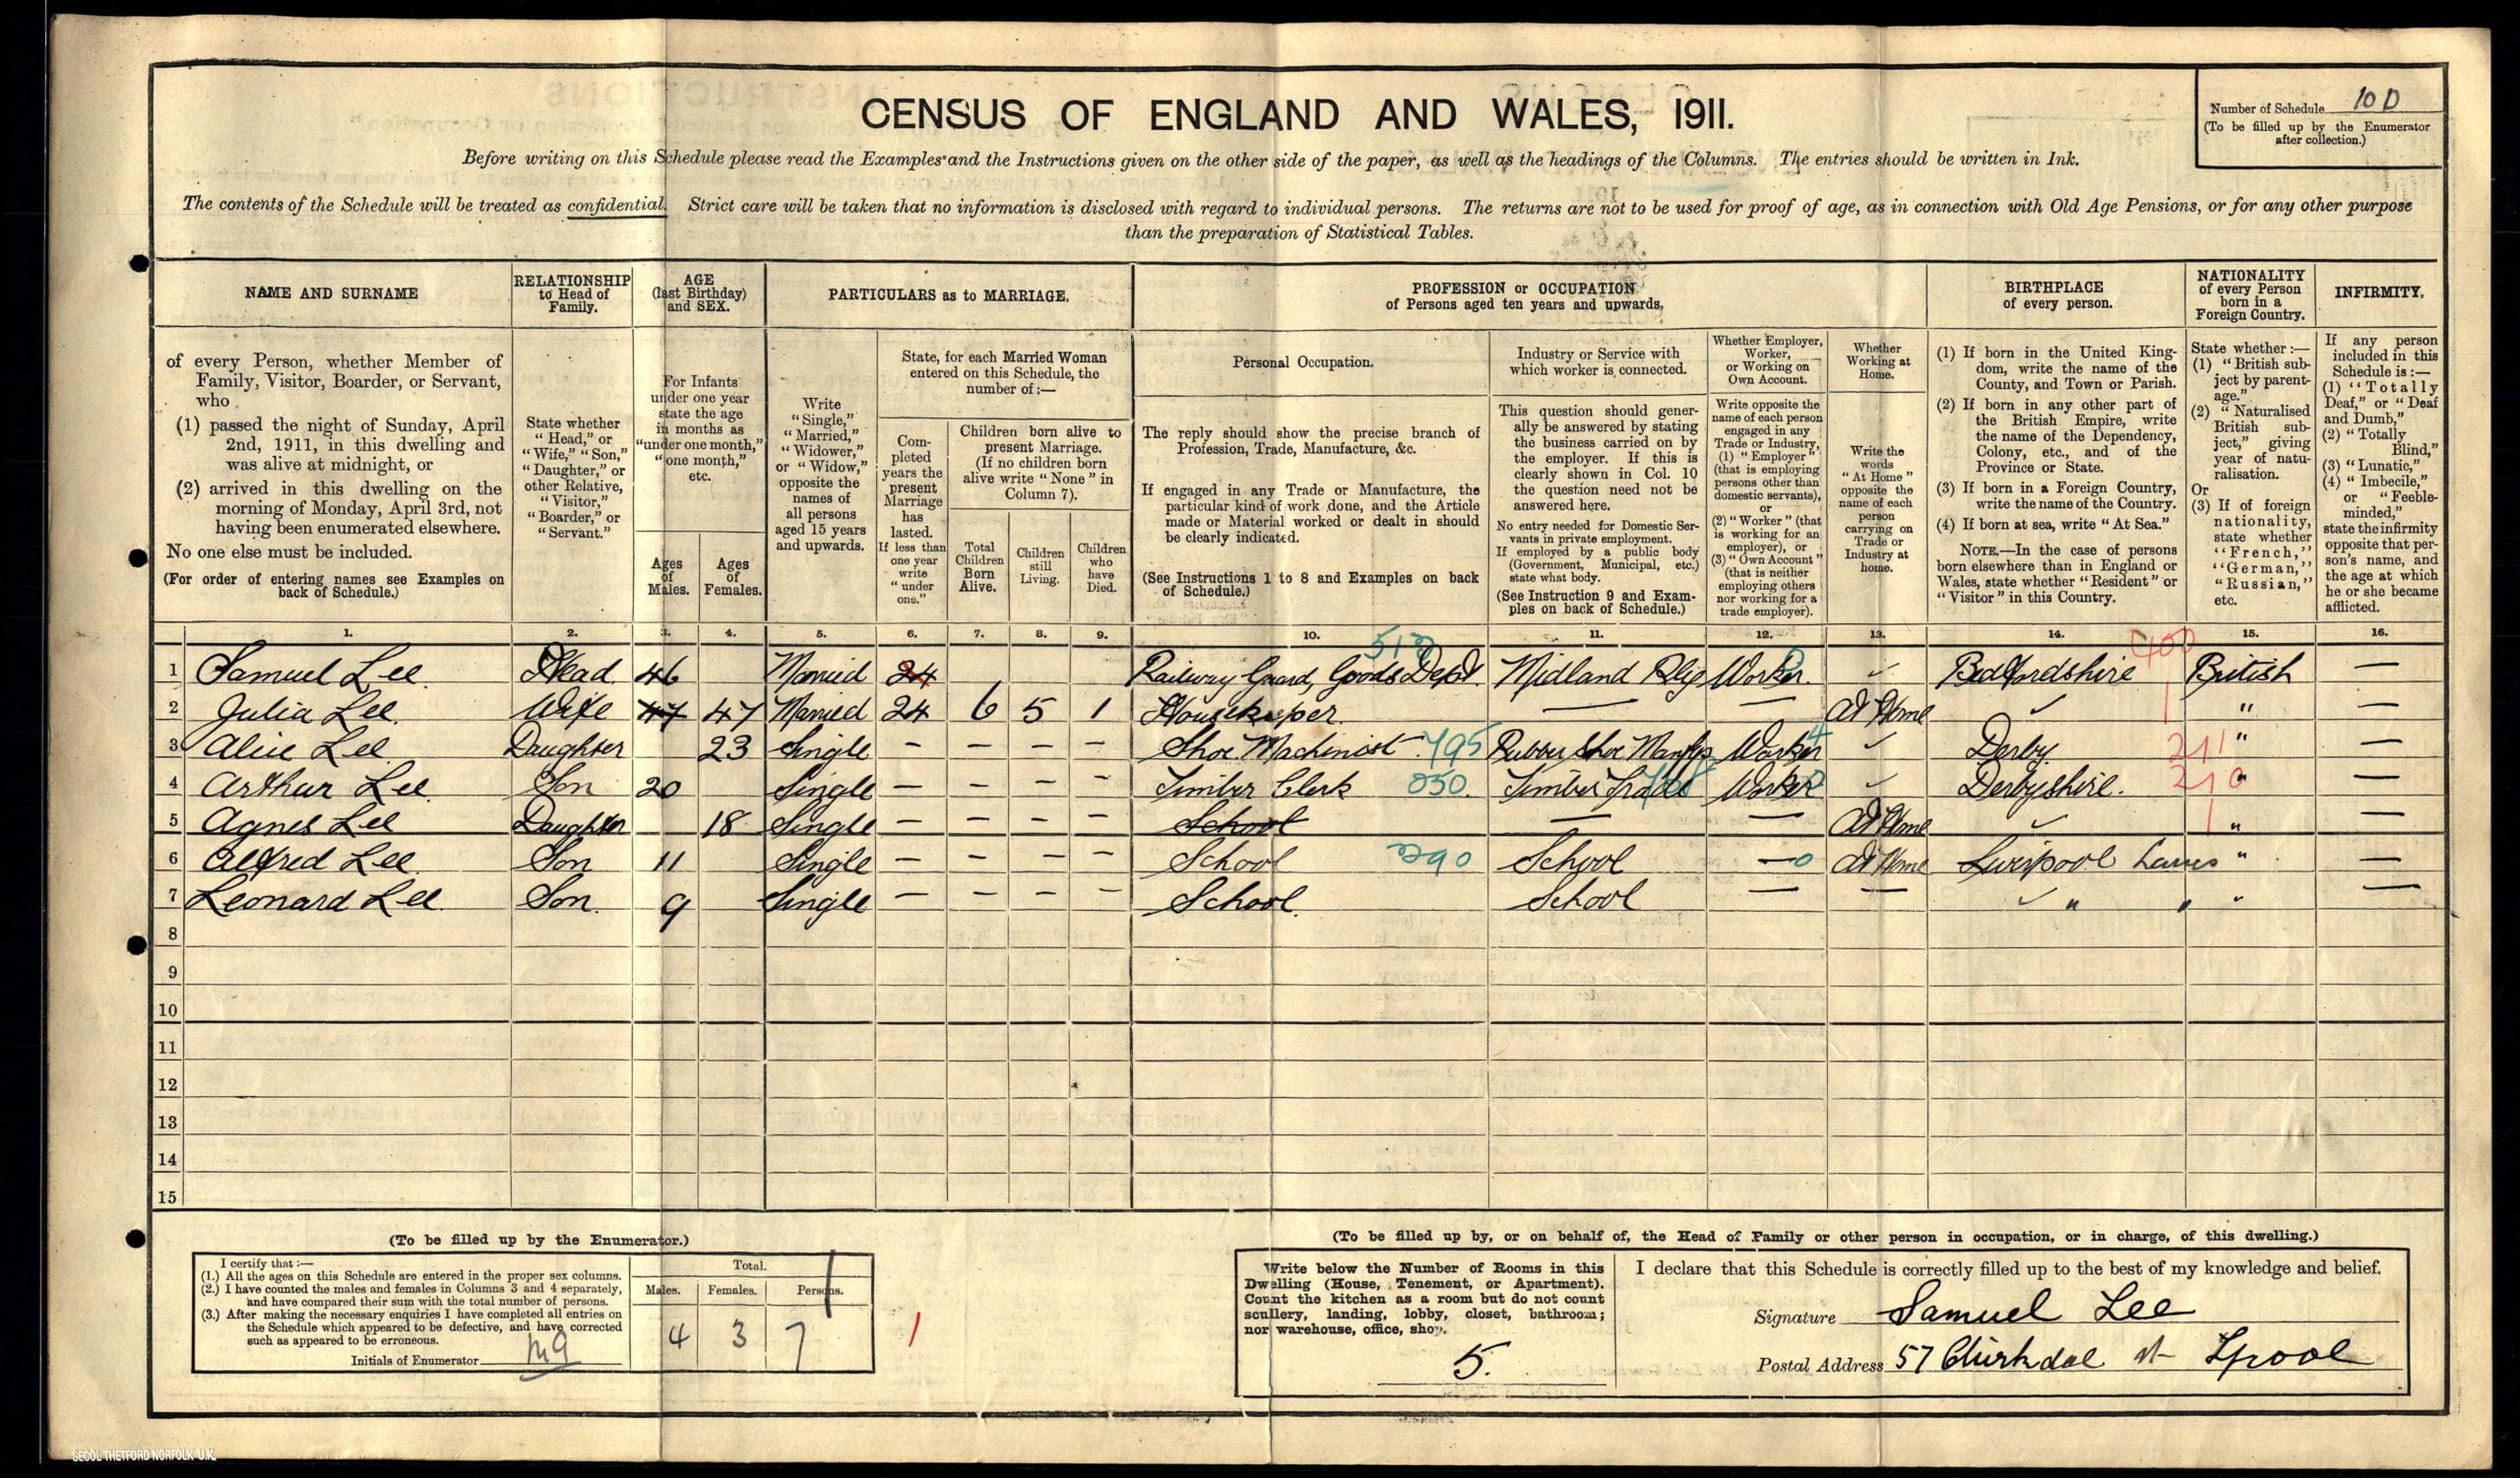 CENSUS OF ENGLAND AND WALES, 1911.
Number of Schedule 10 D
(To be filled up by the Enumerator
after collection.)
Before writing on this Schedule please read the Examples and the Instructions given on the other side of the paper, as well as the headings of the Columns. The entries should be written in Ink.
The contents of the Schedule will be treated as confidential. Strict care will be taken that no information is disclosed with regard to individual persons. The returns are not to be used for proof of age, as in connection with Old Age Pensions, or for any other purpose
than the preparation of Statistical Tables.
NAME AND SURNAME
of every Person, whether Member of
Family, Visitor, Boarder, or Servant,
who
(1) passed the night of Sunday, April
2nd, 1911, in this dwelling and
was alive at midnight, or
(2) arrived in this dwelling on the
morning of Monday, April 3rd, not
having been enumerated elsewhere.
No one else must be included.
(For order of entering names see Examples on
back of Schedule.)
RELATIONSHIP
to Head of
Family.
State whether
"Head," or
"Wife," "Son,"
"Daughter," or
other Relative,
"Visitor,"
"Boarder," or
"Servant."
AGE
(last Birthday)
and SEX.
For Infants
under one year
state the age
in months as
"under one month,"
"one month,"
etc.
Ages
of
Males.
Ages
of
Females.
PARTICULARS as to MARRIAGE.
Write
"Single,"
"Married,"
"Widower,"
or "Widow,"
opposite the
names of
all persons
aged 15 years
and upwards.
State, for each Married Woman
entered on this Schedule, the
number of:—
Com-
pleted
years the
present
Marriage
has
lasted.
If less than
one year
write
"under
one."
Children born alive to
present Marriage.
(If no children born
alive write "None" in
Column 7).
Total
Children
Born
Alive.
Children
still
Living.
Children
who
have
Died.
PROFESSION or OCCUPATION
of Persons aged ten years and upwards.
Personal Occupation.
The reply should show the precise branch of
Profession, Trade, Manufacture, &c.
If engaged in any Trade or Manufacture, the
particular kind of work done, and the Article
made or Material worked or dealt in should
be clearly indicated.
(See Instructions 1 to 8 and Examples on back
of Schedule.)
Industry or Service with
which worker is connected.
This question should gener-
ally be answered by stating
the business carried on by
the employer. If this is
clearly shown in Col. 10
the question need not be
answered here.
No entry needed for Domestic Ser-
vants in private employment.
If employed by a public body
(Government, Municipal, etc.)
state what body.
(See Instruction 9 and Exam-
ples on back of Schedule.)
Whether Employer,
Worker,
or Working on
Own Account.
Write opposite the
name of each person
engaged in any
Trade or Industry,
(1) "Employer"
(that is employing
persons other than
domestic servants),
or
(2) "Worker" (that
is working for an
employer), or
(3) "Own Account"
(that is neither
employing others
nor working for a
trade employer).
Whether
Working at
Home.
Write the
words
"At Home"
opposite the
name of each
person
carrying on
Trade or
Industry at
home.
BIRTHPLACE
of every person.
(1) If born in the United King-
dom, write the name of the
County, and Town or Parish.
(2) If born in any other part of
the British Empire, write
the name of the Dependency,
Colony, etc., and of the
Province or State.
(3) If born in a Foreign Country,
write the name of the Country.
(4) If born at sea, write "At Sea."
NOTE.—In the case of persons
born elsewhere than in England or
Wales, state whether "Resident" or
"Visitor" in this Country.
NATIONALITY
of every Person
born in a
Foreign Country.
State whether:—
(1) "British sub-
ject by parent-
age."
(2) "Naturalised
British sub-
ject," giving
year of natu-
ralisation.
Or
(3) If of foreign
nationality,
state whether
"French,"
"German,"
"Russian,"
etc.
INFIRMITY.
If any person
included in this
Schedule is:—
(1) "Totally
Deaf," or "Deaf
and Dumb,"
(2) "Totally
Blind,"
(3) "Lunatic,"
(4) "Imbecile,"
or "Feeble-
minded,"
state the infirmity
opposite that per-
son's name, and
the age at which
he or she became
afflicted.
1. 2. 3. 4. 5. 6. 7. 8. 9. 10. 11. 12. 13. 14. 15. 16.
1 Samuel Lee. Head 46 Married 24 Railway Guard, Goods Dept. 513 Midland Rly Worker. Bedfordshire 400 British —
2 Julia Lee. Wife 47 47 Married 24 6 5 1 Housekeeper. — — At Home " —
3 Alice Lee. Daughter 23 Single — — — — Shoe Machinist 495 Rubber Shoe Worker Derby. 211 " —
4 Arthur Lee. Son 20 Single — — — Timber Clerk 050. Timber Trade Worker Derbyshire. 210 " —
5 Agnes Lee Daughter 18 Single — — — — School — — At Home " —
6 Alfred Lee. Son 11 Single — — — — School 290 School — 0 At Home Liverpool Lancs " —
7 Leonard Lee. Son. 9 Single — — — — School. School — — " " " —
8
9
10
11
12
13
14
15
(To be filled up by the Enumerator.)
I certify that:—
(1.) All the ages on this Schedule are entered in the proper sex columns.
(2.) I have counted the males and females in Columns 3 and 4 separately,
and have compared their sum with the total number of persons.
(3.) After making the necessary enquiries I have completed all entries on
the Schedule which appeared to be defective, and have corrected
such as appeared to be erroneous.
Initials of Enumerator
Total.
Males. Females. Persons.
4 3 7
(To be filled up by, or on behalf of, the Head of Family or other person in occupation, or in charge, of this dwelling.)
Write below the Number of Rooms in this
Dwelling (House, Tenement, or Apartment).
Count the kitchen as a room but do not count
scullery, landing, lobby, closet, bathroom;
nor warehouse, office, shop.
5.
I declare that this Schedule is correctly filled up to the best of my knowledge and belief.
Signature Samuel Lee
Postal Address 57 st Lpool
SECOL THETFORD NORFOLK U.K.